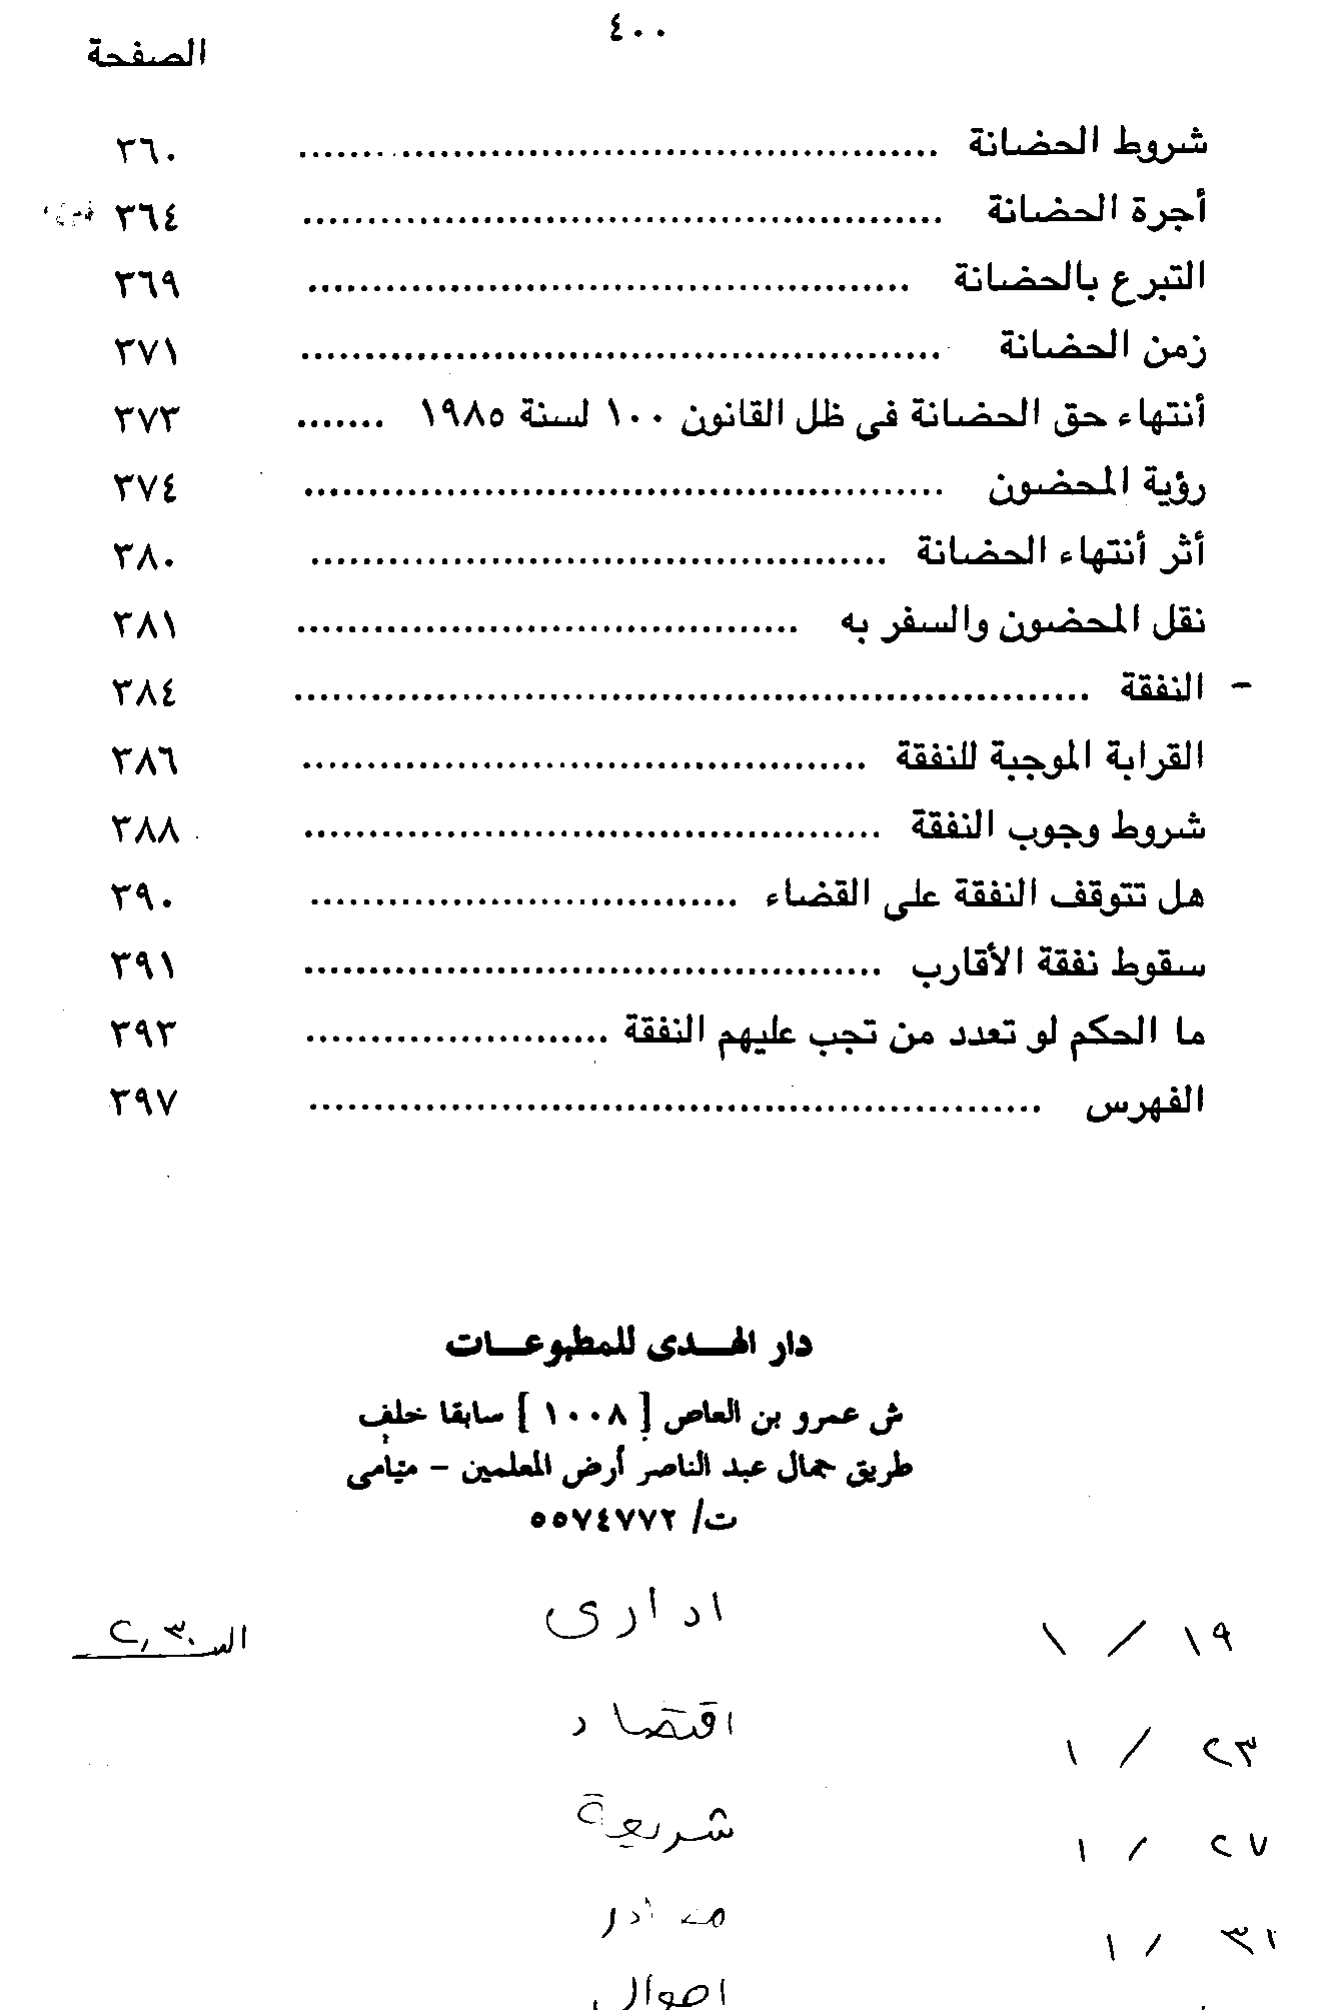 ٤٠٠
الصفحة
شروط الحضانة ................................................ ٣٦٠
أجرة الحضانة ................................................ ٣٦٤
التبرع بالحضانة ............................................. ٣٦٩
زمن الحضانة ................................................ ٣٧١
أنتهاء حق الحضانة فى ظل القانون ١٠٠ لسنة ١٩٨٥ ....... ٣٧٣
رؤية المحضون ................................................ ٣٧٤
أثر أنتهاء الحضانة ........................................... ٣٨٠
نقل المحضون والسفر به ...................................... ٣٨١
- النفقة ............................................................ ٣٨٤
القرابة الموجبة للنفقة .......................................... ٣٨٦
شروط وجوب النفقة ........................................... ٣٨٨
هل تتوقف النفقة على القضاء ................................ ٣٩٠
سقوط نفقة الأقارب ........................................... ٣٩١
ما الحكم لو تعدد من تجب عليهم النفقة ....................... ٣٩٣
الفهرس ....................................................... ٣٩٧
دار الهـــدى للمطبوعـــات
ش عمرو بن العاص [ ١٠٠٨ ] سابقا خلف
طريق جمال عبد الناصر أرض المعلمين - ميامى
ت/ ٥٥٧٤٧٧٢
١٩ / ١ ادارى ٢,٣٠
٢٣ / ١ اقتصاد
٢٧ / ١ شريعة
٣١ / ١
احوال